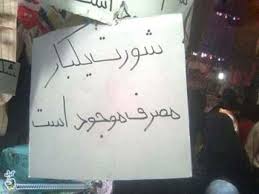 شورت یکبار
مصرف موجود است